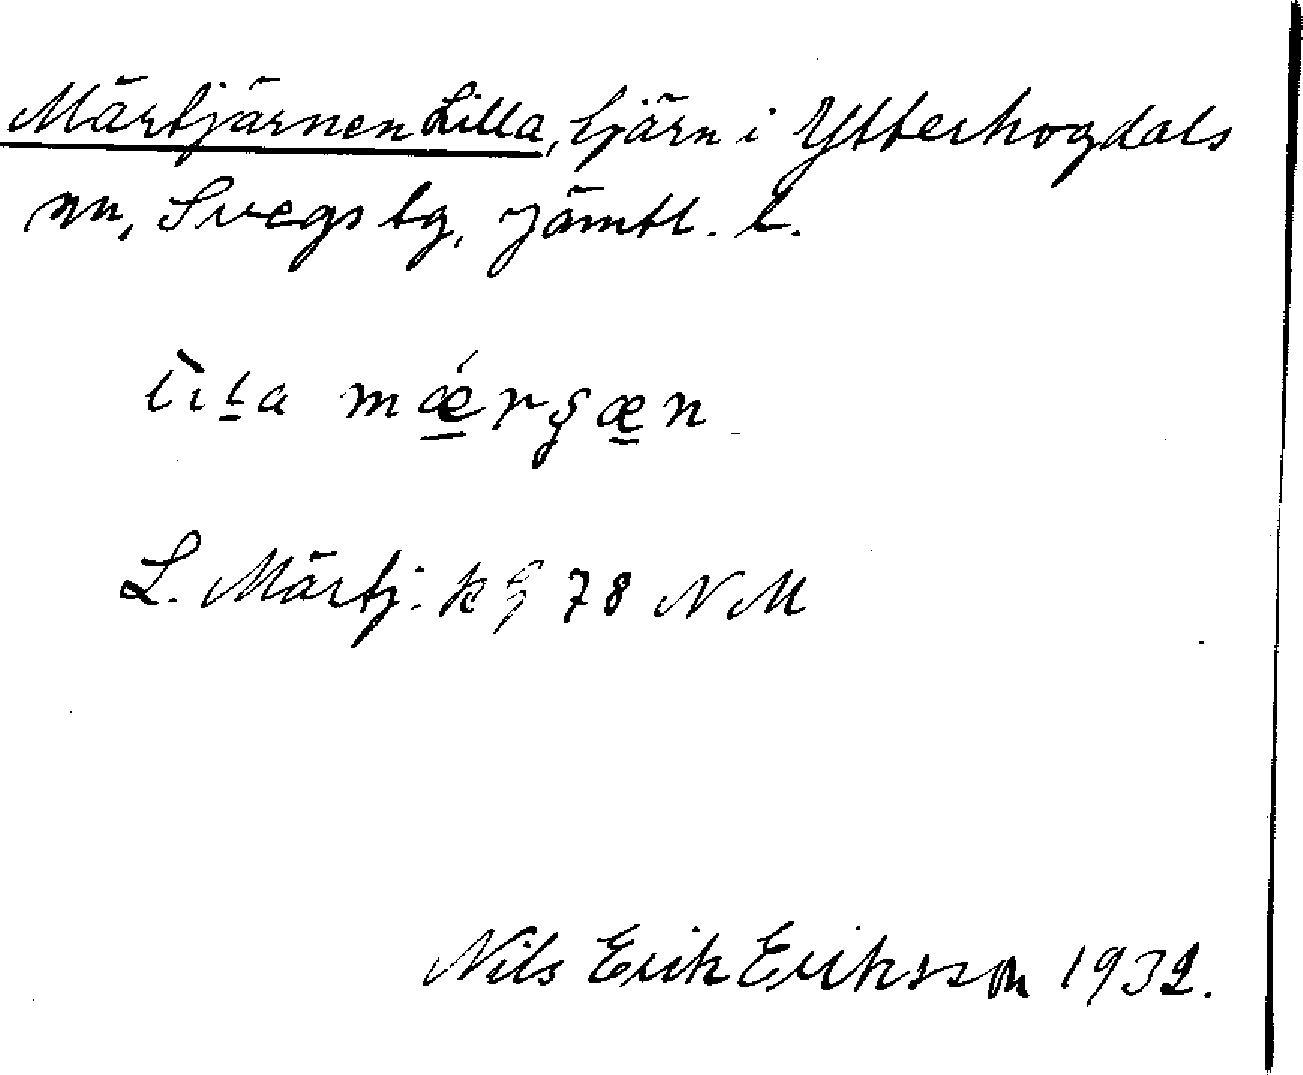 Märtjärnen Lilla, tjärn i Ytterhogdals
sn, Svegs tg, Jämtl. l.
lìt̠a mǽ̠rʂæ̠n
L. Märtj. k § 78 NM
Nils Erik Eriksson 1932.